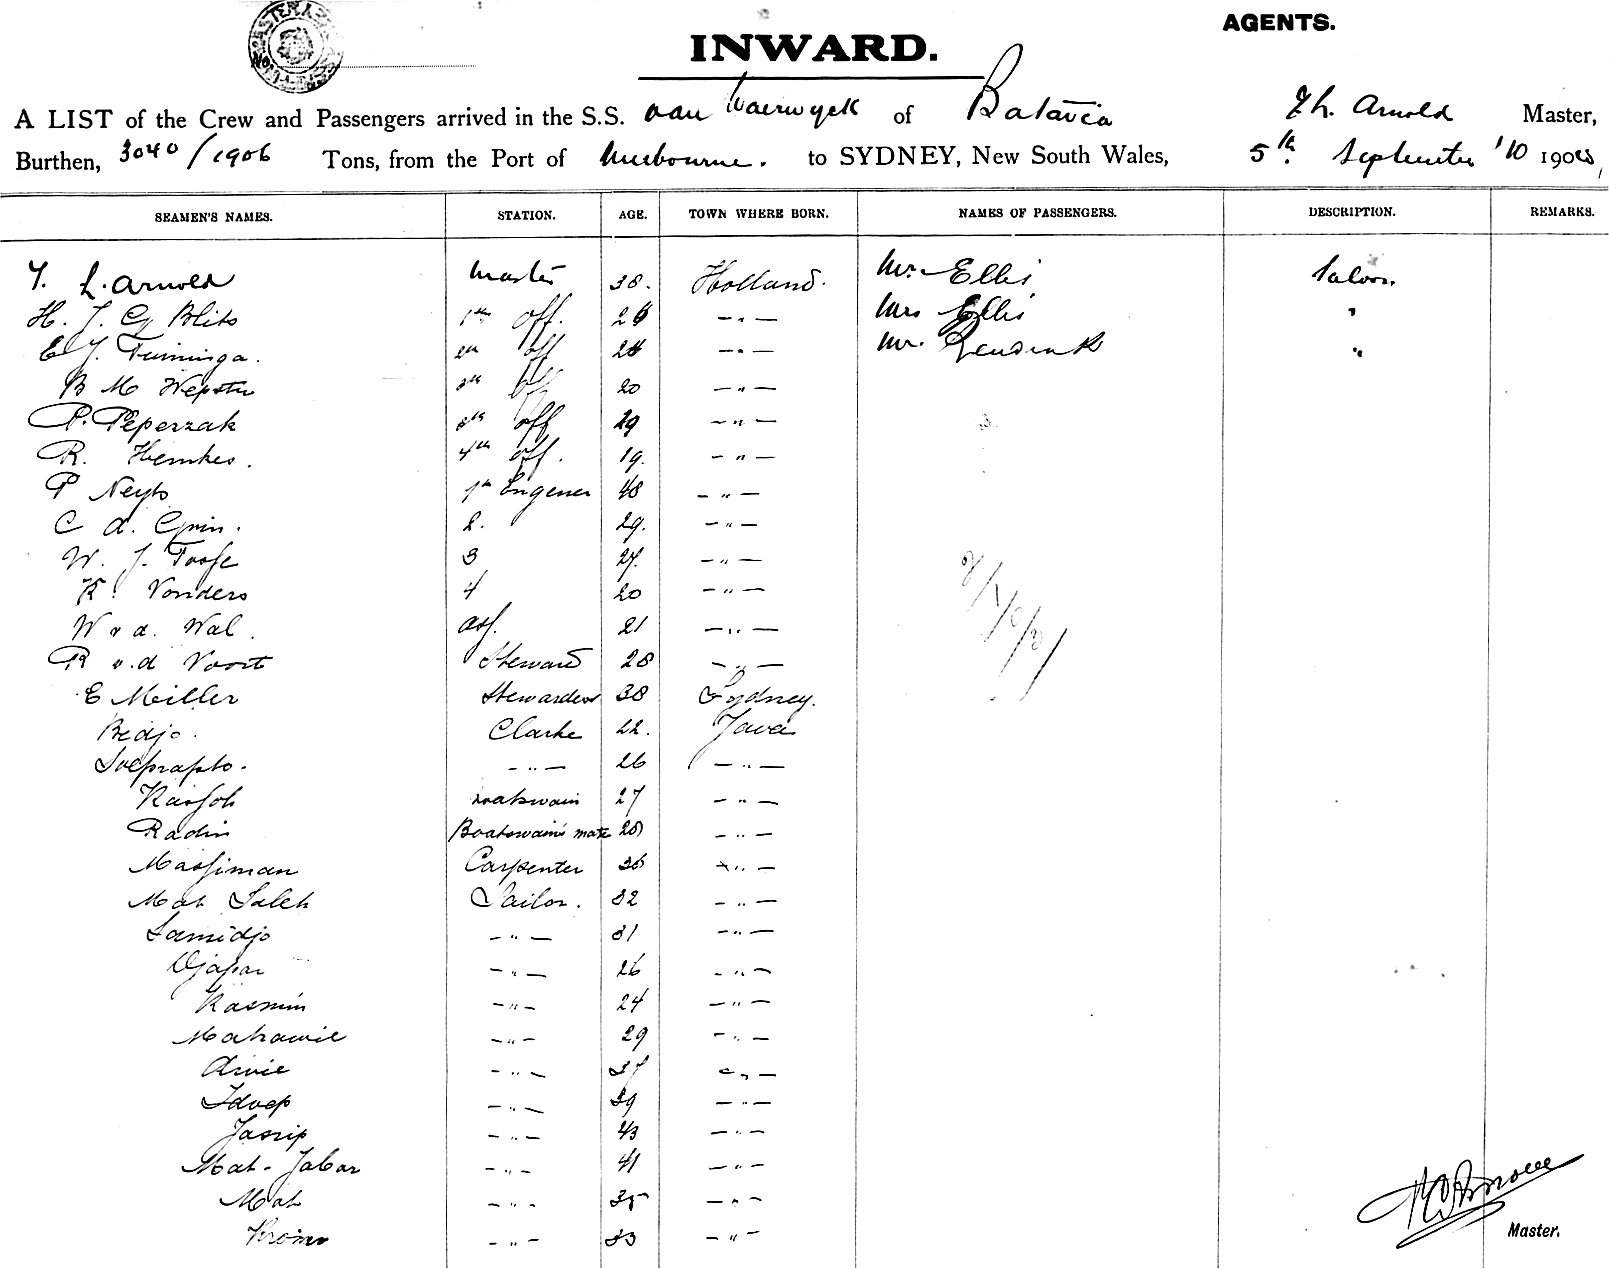 AGENTS.
INWARD.
A LIST of the Crew and Passengers arrived in the S.S. van Waerwyck of Batavia Th. Arnold Master,
Burthen, 3040/1906 Tons, from the Port of Melbourne. to SYDNEY, New South Wales, 5th September '10 190
SEAMEN'S NAMES. STATION. AGE. TOWN WHERE BORN. NAMES OF PASSENGERS. DESCRIPTION. REMARKS.
L. Arnold Master 38. Holland. Mr. Ellis Saloon
H. J. Blits 1st off. 26 — " — Mrs Ellis "
E J. 2n off — " — Mr. "
B M Wepster off 20 — " —
P. Peperzak off 29 — " —
R. Hemkes. 4th off. 19. — " —
P Neyts 1st Engeneer 48 — " —
C d. 2. 29. — " —
W. J. 3 27. — " —
K. Vonders 4 20 — " —
W v d. Wal. ass. 21 — " —
R v.d Voort Steward 28 — " —
E Meiller Stewardess 38 Sydney.
Bedjo. Clarke 22. Java
Soeprapto. — " — 26 — " —
Kassoh boatswain 27 — " —
Radin Boatswain's mate 28 — " —
Massiman Carpenter 36 — " —
Mat Saleh Sailor. 32 — " —
Samidjo — " — 31 — " —
Djapar — " — 26 — " —
Kasmin — " — 24 — " —
Matrawie — " — 29 — " —
Arvie — " — 37 — " —
Idoep — " — 39 — " —
Jasrip — " — 43 — " —
Mat-Jabar — " — 41 — " —
Mat — " — 35 — " —
Kromo — " — 33 — " —
Master.